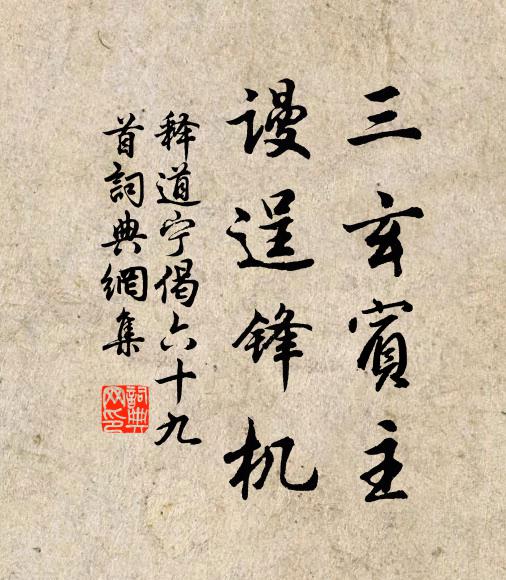 三玄賓主
謾逞锋机
释道宁偈六十九
首詞典網集
詞典
网印